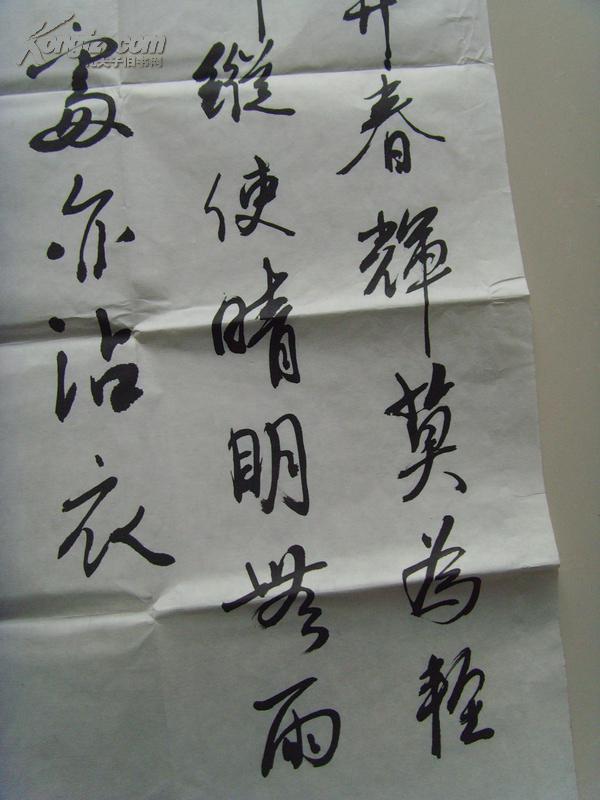 春輝莫為輕
縱使晴明無雨
處亦沾衣
Kongfz.com
孔夫子旧书网